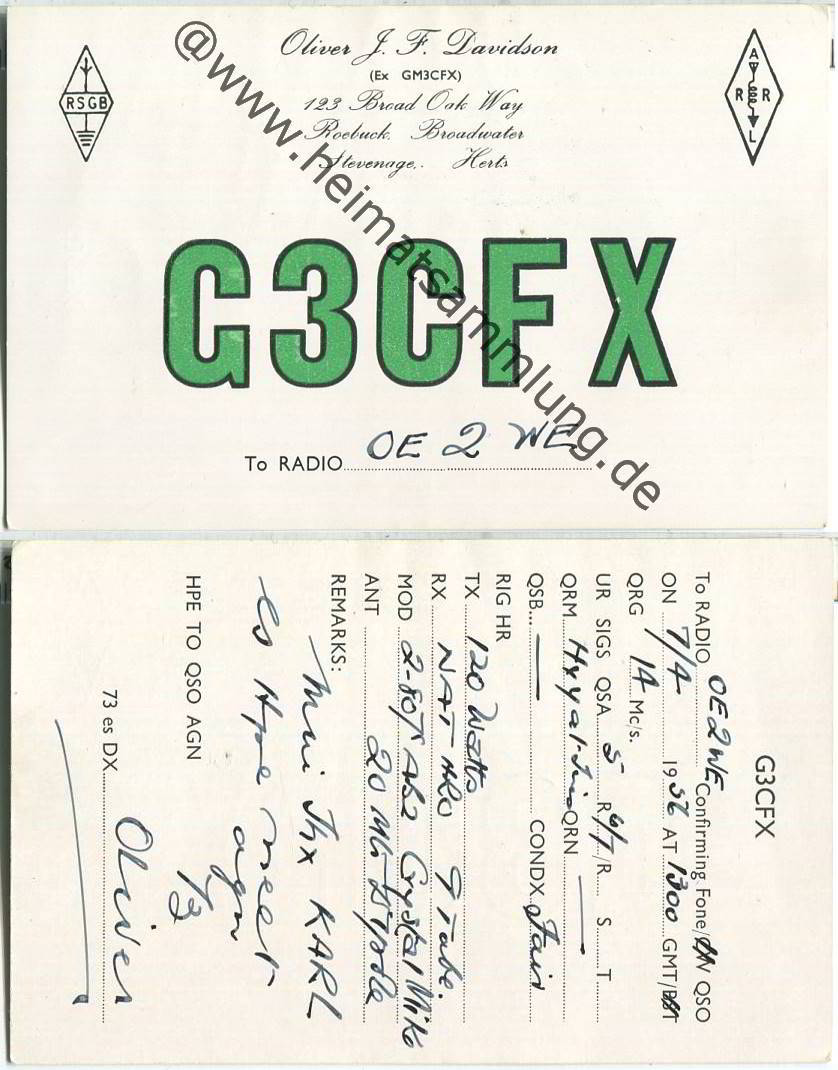 Oliver J. F. Davidson
(Ex GM3CFX)
123 Broad Oak Way
Roebuck, Broadwater
Stevenage,. Herts
RSGB
A
R R
L
G3CFX
To RADIO OE 2 WE
@www.heimatsammlung.de
G3CFX
To RADIO OE2WE Confirming Fone/CW QSO
ON 7/4 1956 AT 1300 GMT/BST
QRG 14 Mc/s.
UR SIGS QSA 5 R 6/7/R S T
QRM QRN —
QSB... — CONDX Fair
RIG HR
TX 120 Watts
RX NAT HRO 9 Tube.
MOD 2-807 AB2 Crystal Mike
ANT 20 Mt Dipole
REMARKS:
Mni Thx KARL
es Hpe meet
agn
73
HPE TO QSO AGN
73 es DX Oliver